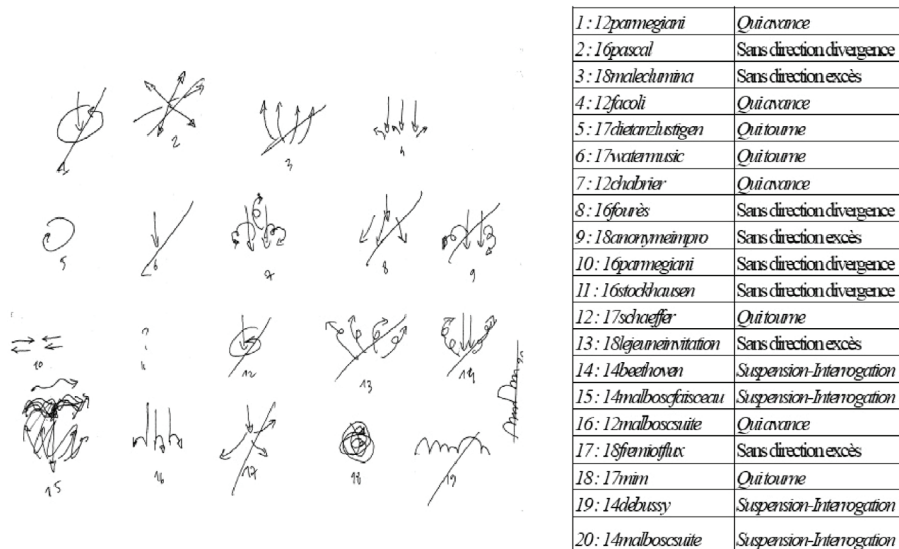 1
2
3
4
5
6
7
8
9
10
?
11
12
13
14
15
16
17
18
19
20
1 : 12parmegiani Qui avance
2 : 16pascal Sans direction divergence
3 : 18malechumina Sans direction excès
4 : 12facoli Qui avance
5 : 17dietanzlustigen Qui tourne
6 : 17watermusic Qui tourne
7 : 12chabrier Qui avance
8 : 16fourès Sans direction divergence
9 : 18anonymeimpro Sans direction excès
10 : 16parmegiani Sans direction divergence
11 : 16stockhausen Sans direction divergence
12 : 17schaeffer Qui tourne
13 : 18lejeuneinvitation Sans direction excès
14 : 14beethoven Suspension-Interrogation
15 : 14malboscfaisceau Suspension-Interrogation
16 : 12malboscsuite Qui avance
17 : 18fremiotflux Sans direction excès
18 : 17mim Qui tourne
19 : 14debussy Suspension-Interrogation
20 : 14malboscsuite Suspension-Interrogation